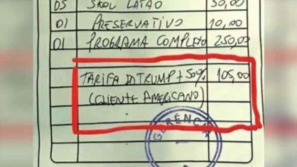 05 SKOL LATÃO 50,00
01 PRESERVATIVO 10,00
01 PROGRAMA COMPLETO 250,00
TARIFA DI TRUMP + 50% 105,00
(CLIENTE AMERICANO)
GERÊNCIA